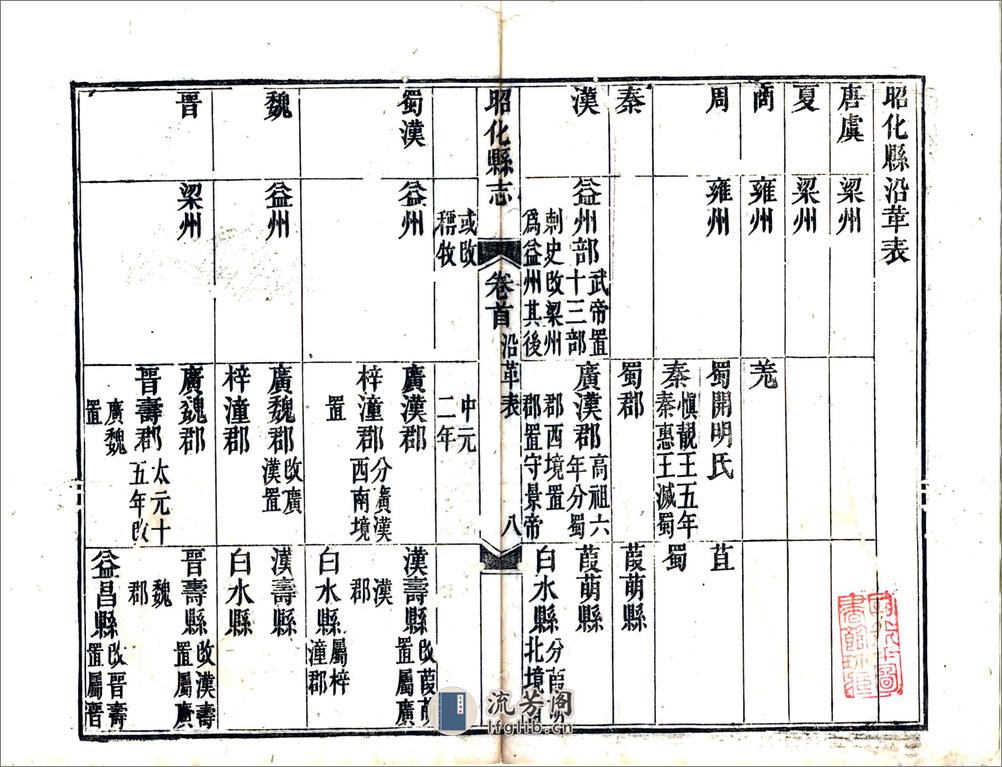 昭化縣沿革表
唐虞 梁州
夏 梁州
商 雍州 羌
周 雍州 蜀開明氏 苴
秦慎靚王五年秦惠王滅蜀 蜀
秦 蜀郡 葭萌縣
漢 益州部武帝置十三部刺史改梁州爲益州其後 廣漢郡高祖六年分蜀郡西境置郡置守景帝 葭萌縣
白水縣分葭萌北境置
昭化縣志 卷首 沿革表 八
或改稱牧 中元二年
蜀漢 益州 廣漢郡 漢壽縣改葭萌置屬廣漢郡
梓潼郡分廣漢西南境置 白水縣屬梓潼郡
魏 益州 廣魏郡改廣漢置 漢壽縣
梓潼郡 白水縣
晉 梁州 廣魏郡 晉壽縣改漢壽置屬廣魏郡
晉壽郡太元十五年改廣魏置 益昌縣改晉壽置屬晉
流芳阁
lfglib.cn